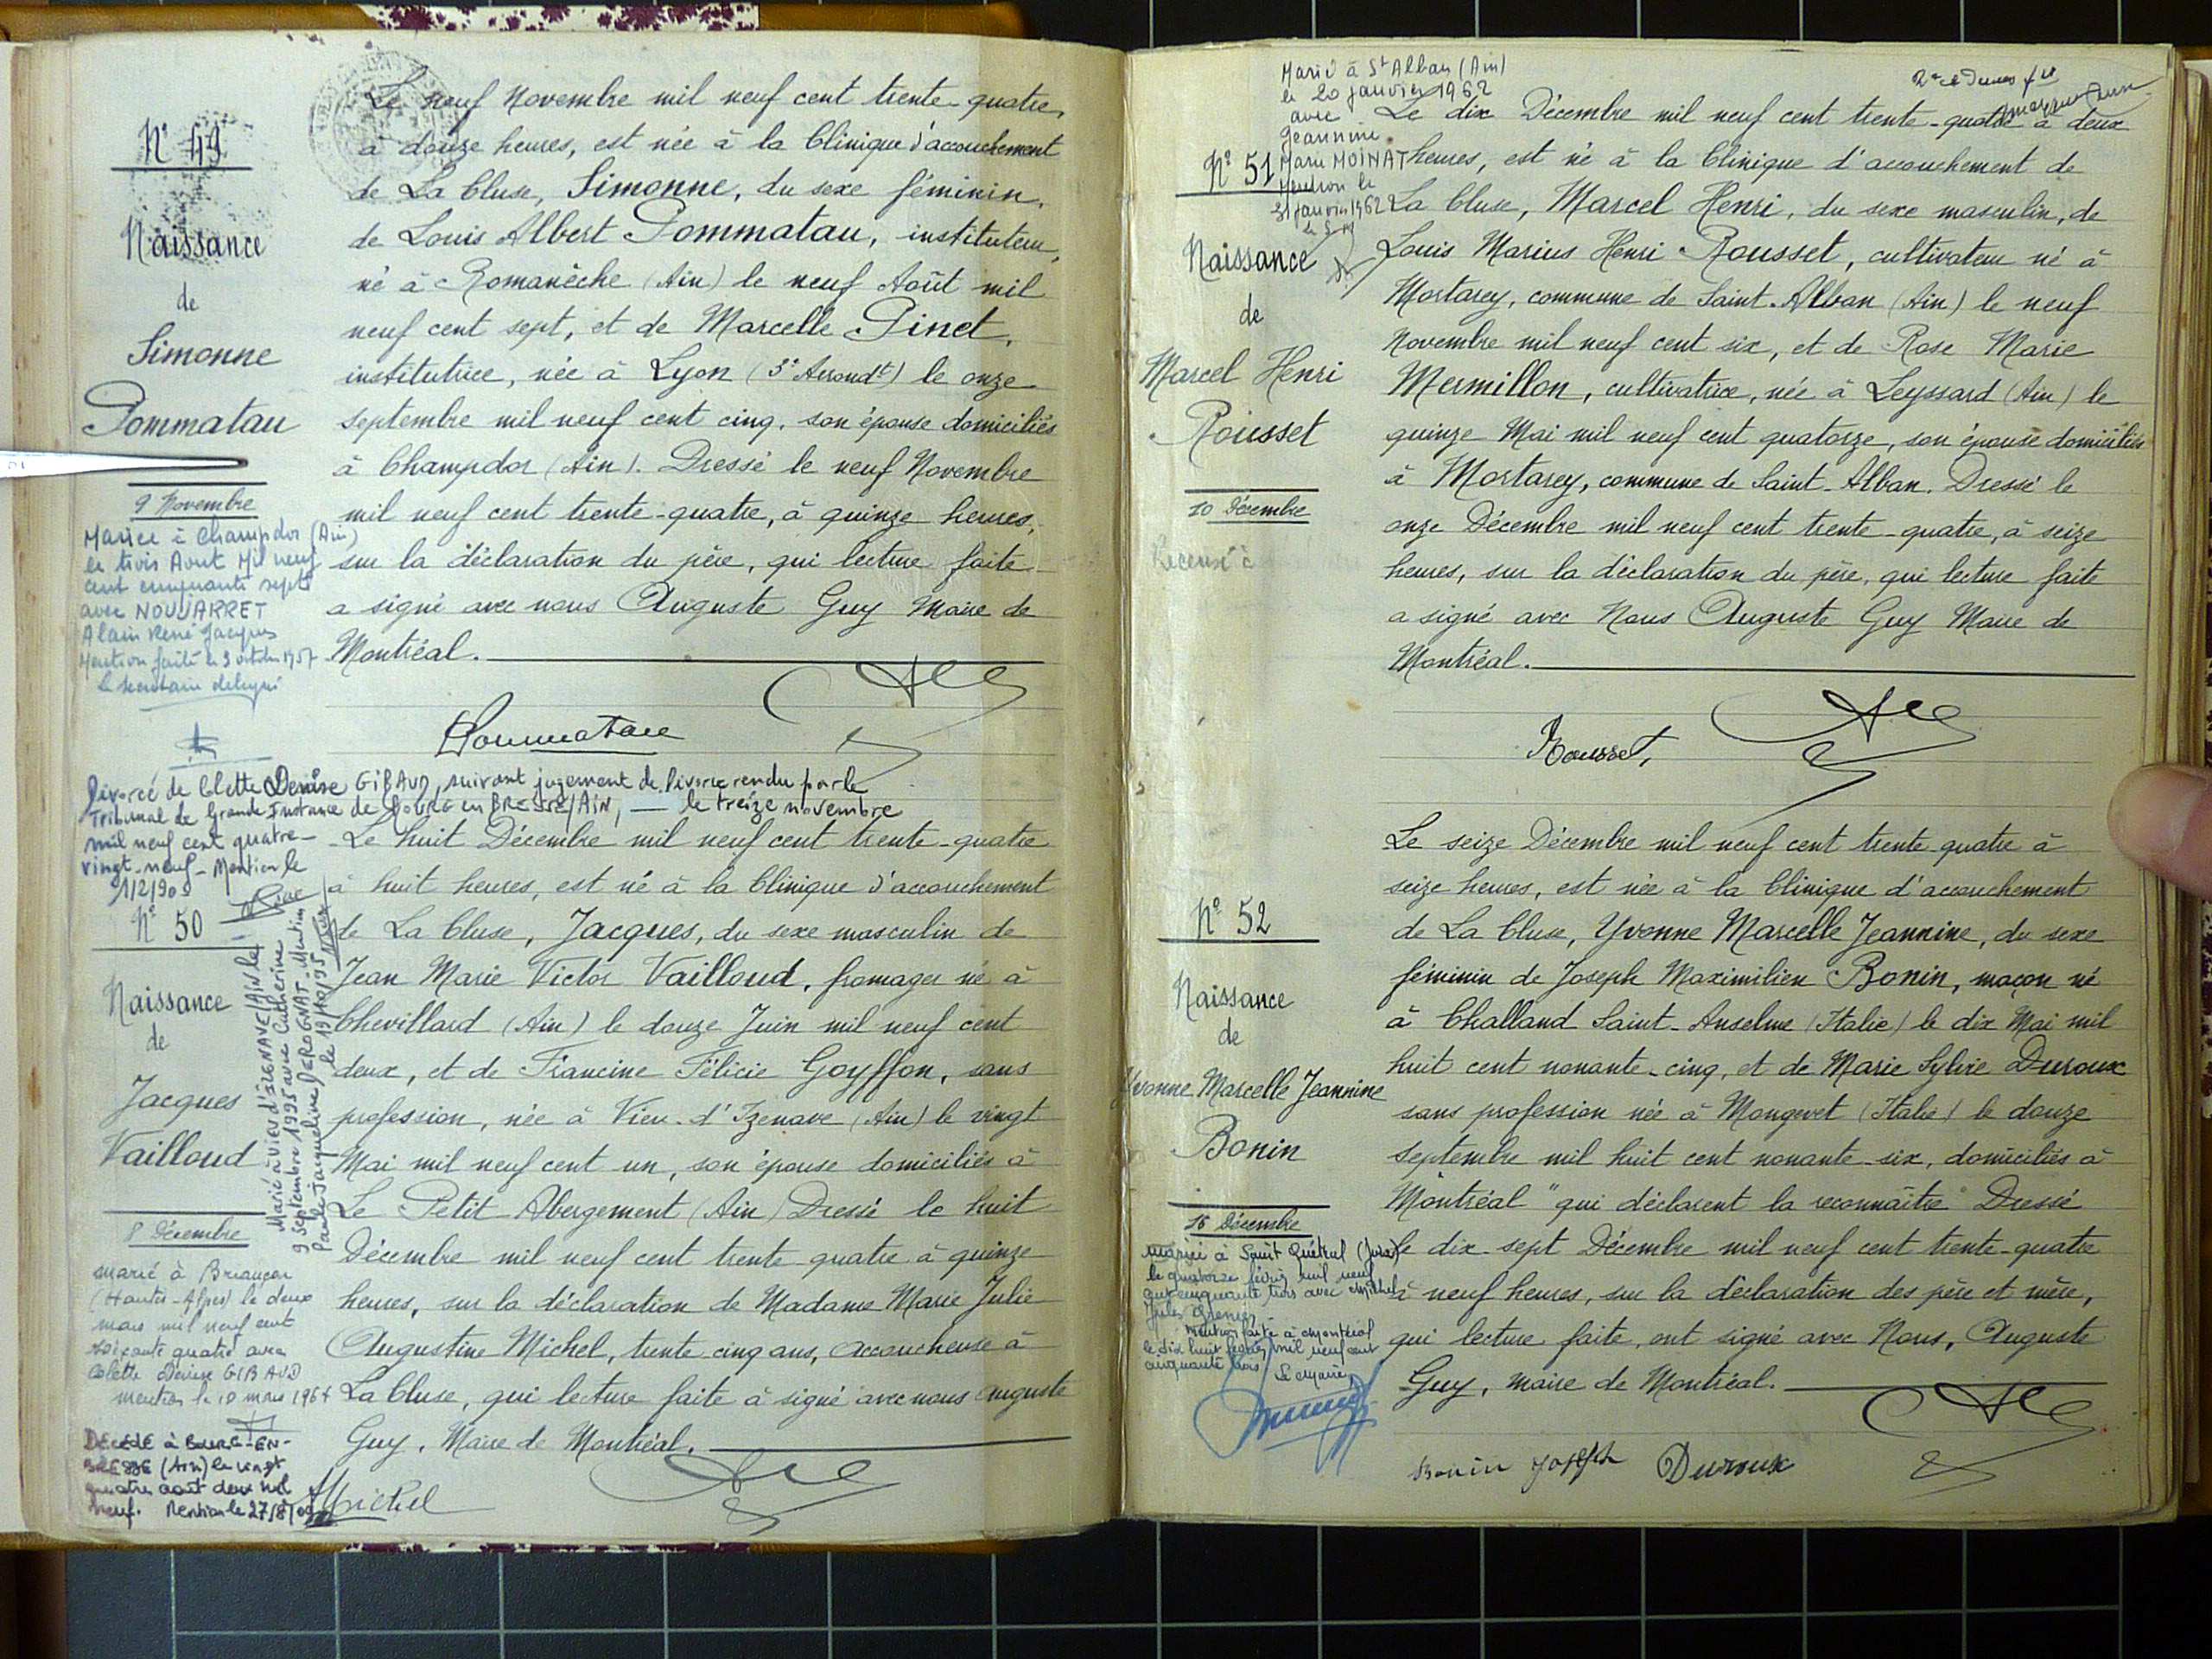 N° 49
Naissance
de
Simonne
Pommatau
9 Novembre
Mariée à Champdor (Ain)
le trois Aout Mil neuf
cent cinquante sept
avec NOUJARRET
Alain René Jacques
Mention faite le 3 octobre 1957
le secrétaire délégué
Le neuf Novembre mil neuf cent trente-quatre,
à douze heures, est née à la Clinique d'accouchement
de La Cluse, Simonne, du sexe féminin,
de Louis Albert Pommatau, instituteur,
né à Romanèche (Ain) le neuf Août mil
neuf cent sept, et de Marcelle Pinet,
institutrice, née à Lyon (3e Arrondt) le onze
septembre mil neuf cent cinq, son épouse domiciliés
à Champdor (Ain). Dressé le neuf Novembre
mil neuf cent trente-quatre, à quinze heures,
sur la déclaration du père, qui lecture faite
a signé avec nous Auguste Guy Maire de
Montréal.
Pommatau
Divorcé de Colette Denise GIBAUD, suivant jugement de Divorce rendu par le
Tribunal de Grande Instance de BOURG en BRESSE/AIN, — le treize novembre
mil neuf cent quatre-
vingt-neuf - Mention le
N° 50
Naissance
de
Jacques
Vailloud
8 Décembre
marié à Briançon
(Hautes-Alpes) le deux
mars mil neuf cent
soixante quatre avec
Colette Denise GIBAUD
mention le 10 mars 1964
DECEDE à BOURG-EN-
BRESSE (Ain) le vingt
quatre août deux mil
neuf. Mention le 27/8/09
Marié à VIEU d'IZENAVE/AIN le
9 septembre 1995 avec Catherine
Paule Jacqueline PEROGNAT. Mention
Le huit Décembre mil neuf cent trente-quatre
à huit heures, est né à la Clinique d'accouchement
de La Cluse, Jacques, du sexe masculin de
Jean Marie Victor Vailloud, fromager né à
Chevillard (Ain) le douze Juin mil neuf cent
deux, et de Francine Félicie Goyffon, sans
profession, née à Vieu-d'Izenave (Ain) le vingt
Mai mil neuf cent un, son épouse domiciliés à
Le Petit Abergement (Ain) Dressé le huit
Décembre mil neuf cent trente quatre à quinze
heures, sur la déclaration de Madame Marie Julie
Augustine Michel, trente cinq ans, accoucheuse à
La Cluse, qui lecture faite à signé avec nous Auguste
Guy, Maire de Montréal.
Michel
Marié à St Alban (Ain)
le 20 janvier 1962
avec
Jeannine
Marie MOINAT
Mention le
31 janvier 1962
N° 51
Naissance
de
Marcel Henri
Rousset
10 Décembre
Recensé à
Le dix Décembre mil neuf cent trente-quatre à deux
heures, est né à la Clinique d'accouchement de
La Cluse, Marcel Henri, du sexe masculin, de
Louis Marius Henri Rousset, cultivateur né à
Mortarey, commune de Saint-Alban (Ain) le neuf
Novembre mil neuf cent six, et de Rose Marie
Mermillon, cultivatrice, née à Leyssard (Ain) le
quinze Mai mil neuf cent quatorze, son épouse domiciliés
à Mortarey, commune de Saint-Alban. Dressé le
onze Décembre mil neuf cent trente-quatre, à seize
heures, sur la déclaration du père, qui lecture faite
a signé avec Nous Auguste Guy Maire de
Montréal.
Rousset,
N° 52
Naissance
de
Yvonne Marcelle Jeannine
Bonin
16 Décembre
mariée à Saint (Jura)
le quatorze février mil neuf
cent cinquante trois avec Michel
Jules Grenier
Mention faite à Montréal
le dix huit février mil neuf cent
cinquante trois
Le Maire
Le seize Décembre mil neuf cent trente-quatre à
seize heures, est née à la Clinique d'accouchement
de La Cluse, Yvonne Marcelle Jeannine, du sexe
féminin de Joseph Maximilien Bonin, maçon né
à Challand Saint-Anselme (Italie) le dix Mai mil
huit cent nonante-cinq, et de Marie Sylvie Duroux
sans profession née à Mongevet (Italie) le douze
septembre mil huit cent nonante-six, domiciliés à
Montréal "qui déclarent la reconnaître" Dressé
le dix-sept Décembre mil neuf cent trente-quatre
à neuf heures, sur la déclaration des père et mère,
qui lecture faite, ont signé avec Nous, Auguste
Guy, maire de Montréal.
Bonin Joseph Duroux